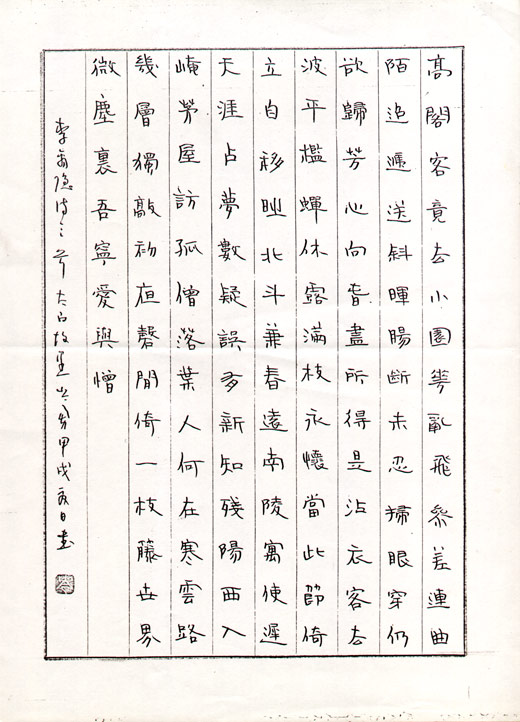 高閣客竟去小園華亂飛參差連曲
陌迢遞送斜暉腸斷未忍掃眼穿仍
欲歸芳心向春盡所得是沾衣客去
波平檻蟬休露滿枝永懷當此節倚
立自移時北斗兼春遠南陵寓使遲
天涯占夢數疑誤有新知殘陽西入
崦茅屋訪孤僧落葉人何在寒雲路
幾層獨敲初夜磬閒倚一枝藤世界
微塵裏吾寧愛與憎
李商隱詩三首 太白故里 甲戌夏日書